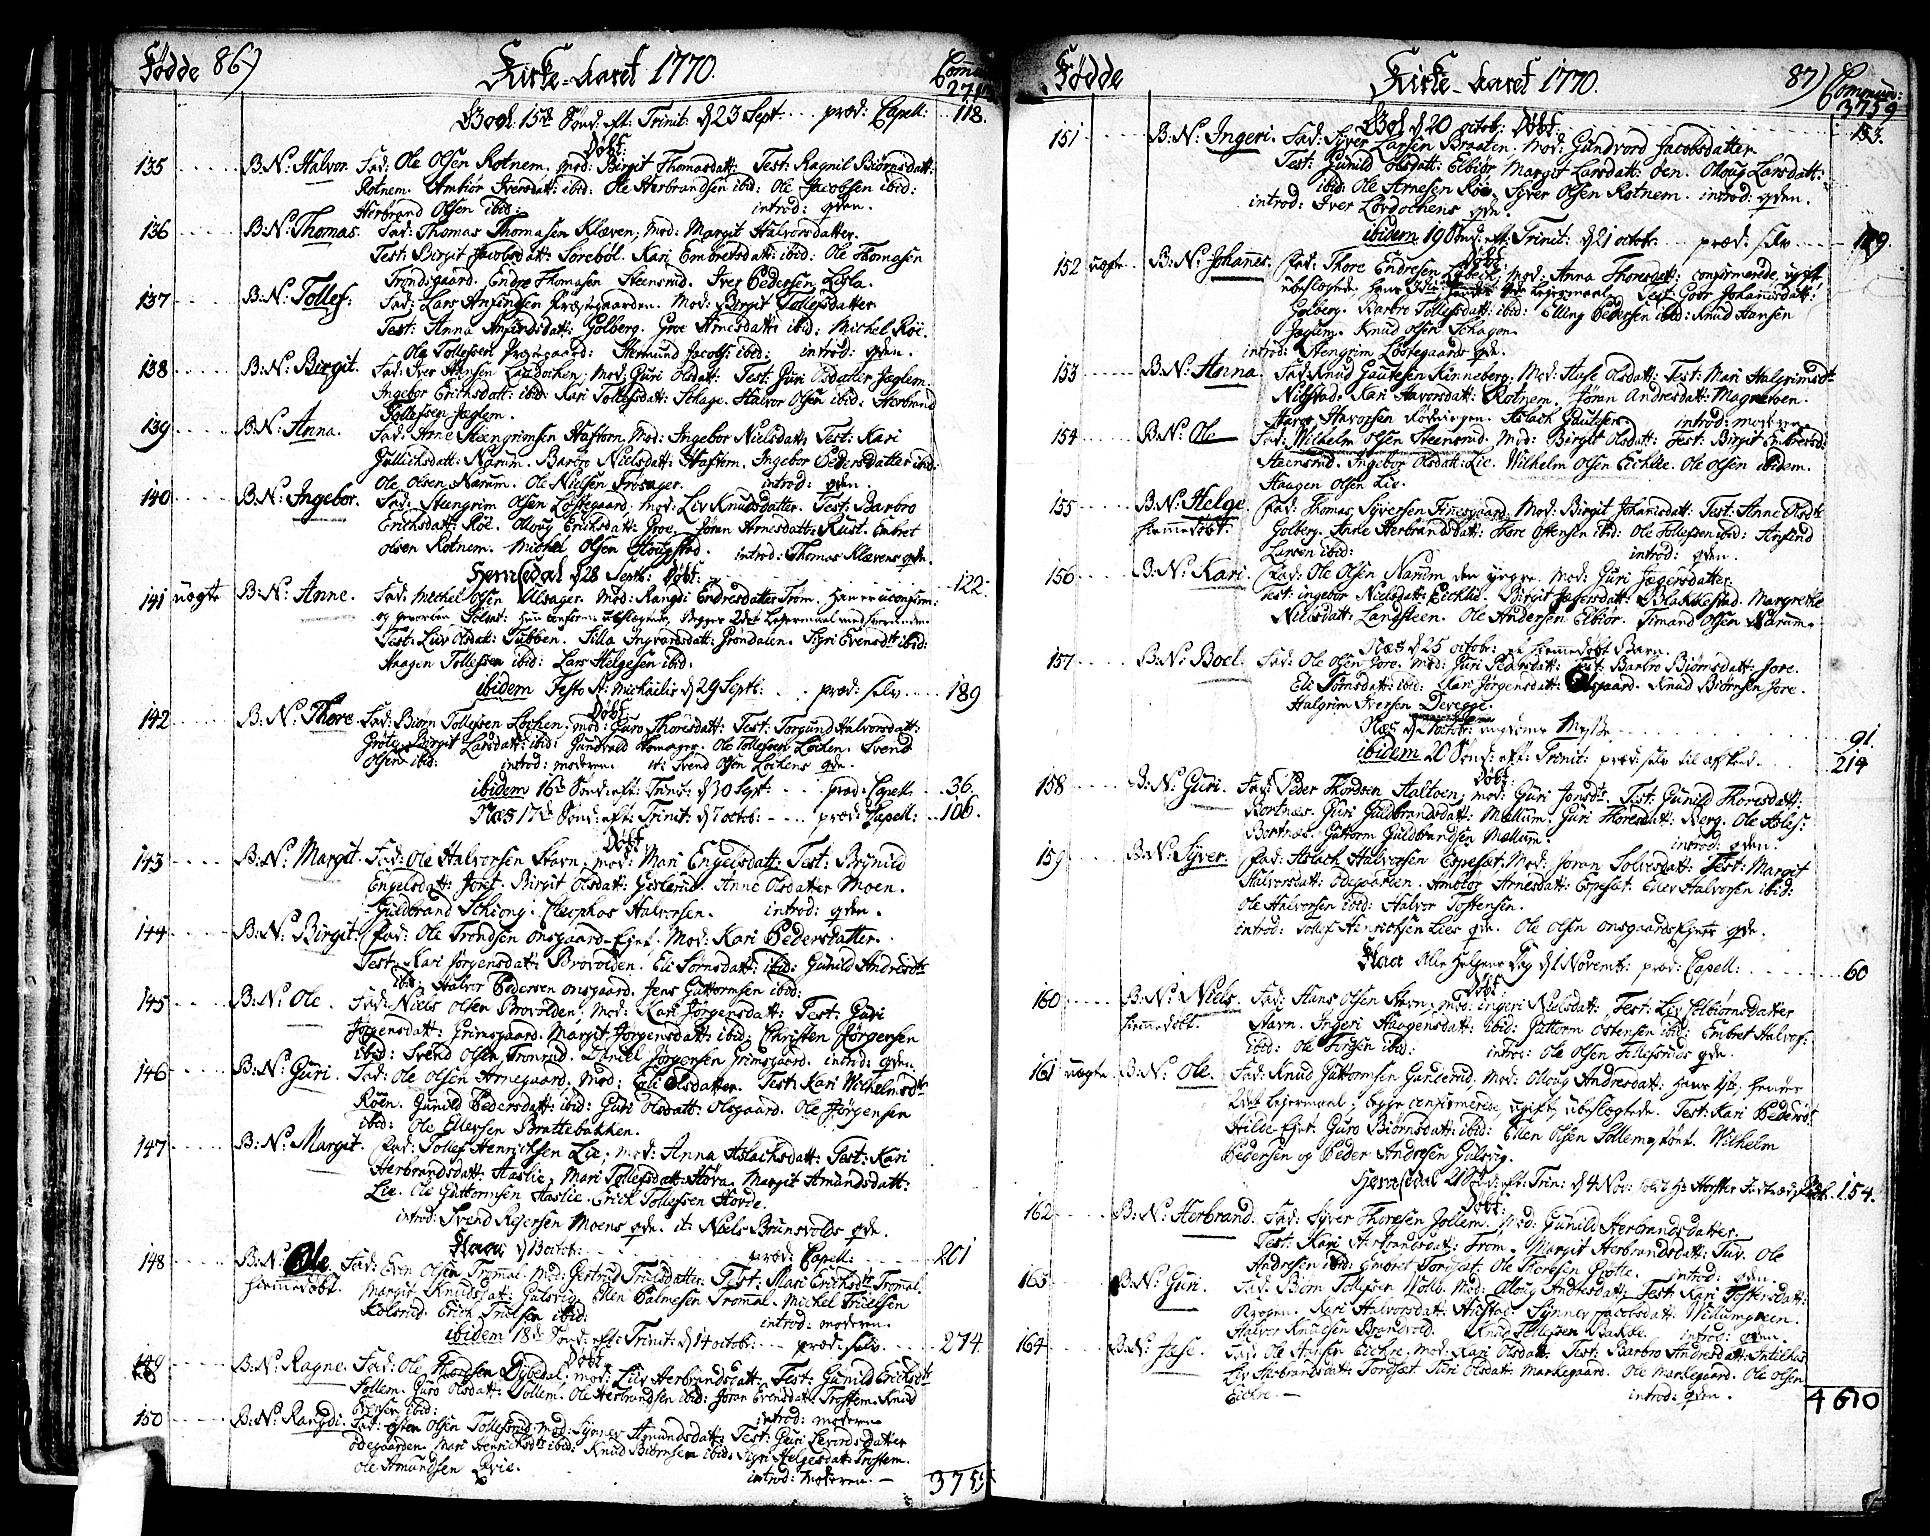 Fødde 86) Kirke-Aaret 1770.
Goel 15de Sønd: eft: Trinit: d 23 Sept. præd: Capell: 118.
Døbt:
135 B: N: Halvor. Fad: Ole Olsen Rotnem, mod: Birgit Thomasdatt: Test: Ragnil Biørnsdatt:
Rotnem. Ambiør Iversdatt: ibid: Ole Herbrandsen ibid: Ole Jacobsen ibid:
Herbrand Olsen ibid: introd: qden.
136 B: N: Thomas. Fad: Thomas Thomasen Klæven; Mod: Margit Halvorsdatter.
Test: Birgit Jacobsdatt: Sørebøl. Kari Embretsdatt: ibid: Ole Thomasen
Trondsgaard. Endre Thomasen Steensrud. Iver Pedersen Lisla.
137 B: N: Tollef: Fad: Lars Anfindsen Præstegaarden. Mod: Birgit Tollefsdatter
Test: Anna Anfindsdatt: Golberg. Groe Arnesdatt: ibid: Michel Röe.
Ole Tollefsen Præstegaard: Aamund Jacobs: ibid: introd: qden.
138 B: N: Birgit. Fad: Iver Hansen Laudochen; Mod: Guri Olsdatt: Test: Guri Olsdatter Jaglem.
Ingebor Erichsdatt: ibid: Kari Tollefsdatt: Schage. Halvor Olsen ibid: Herbrand
Tollefsen Jaglem.
139 B: N: Anna. Fad: Arne Steengrimsen Haftorn, Mod: Ingebor Nielsdatt: Test: Kari
Gullichsdatt: Narum. Barbro Nielsdatt: Haftorn. Ingebor Pedersdatter ibid:
Ole Olsen Narum. Ole Nielsen Frøsager. introd: qden.
140 B: N: Ingebor. Fad: Steengrim Olsen Løstegaard, Mod: Liv Knudsdatter. Test: Barbro
Erichsdatt: Röe. Olloug Erichsdatt: Groe. Jøran Arnesdatt: Rust. Embret
Olsen Rotnem. Michel Olsen Hougstad. introd: Thomas Klævens qden.
Hemsedal d 28 Sept: Døbt: 122.
141 uægte B: N: Anne. Fad: Mechel Olsen Ulsager. Mod: Rangdi Endresdatter Trøm. Han er uconfirm:
Test: Liv Olsdatt: Tubben. Silla Ingvorsdatt: Grøndalen. Sigri Evensdt: ibid:
Haagen Tollefsen ibid: Lars Helgesen ibid.
ibidem Festo St: Michaelis d 29 Septb: præd: selv 189
Døbt
142 B: N: Thore Fad: Biørn Tollefsen Løchen, mod: Guro Thoresdatt: Test: Torgund Halvorsdatt:
Grøte. Birgit Larsdatt: ibid: Gundvald Homager. Ole Tollefsen Løchen. Svend
Olsen ibid: introd: moderen it: Svend Olsen Løchens qde.
ibidem 16de Sønd: eft: Trinit: d 30 Sept: præd: Capell. 36.
Næs 17de Sønd: eft: Trinit: d 7 octob: præd: Capell: 106.
Døbt
143 B: N: Margit. Fad: Ole Halvorsen Skavn, mod: Mari Engelsdatt: Test: Brynild
Engelsdatt: Joref. Birgit Olsdatt: Geslerud. Anne Olsdatter Moen.
Guldbrand Schiong. Cleophas Halvorsen. introd: qden.
144 B: N: Birgit: Fad: Ole Trondsen Onsgaard-Ejet. Mod: Kari Pedersdatter.
Test: Kari Jørgensdatt: Brovolden. Eli Sørnsdatt: ibid: Gunild Andresdt:
ibid: Halvor Pedersen Onsgaard. Jens Guttormsen ibid:
145 B: N: Ole. Fad: Niels Olsen Brovolden; Mod: Kari Jørgensdatt: Test: Guri
Jørgensdatt: Grimsgaard. Margit Jørgensdatt: ibid: Christen Jørgensen
ibid: Svend Olsen Tronrud. Daniel Jørgensen Grimsgaard. introd: qden.
146 B: N: Guri. Fad: Ole Olsen Arnegaard; Mod: Eli Olsdatter. Test: Kari Wilhelmsdt:
Röen. Gunild Pedersdatt: ibid: Guri Olsdatt: Olsgaard. Ole Jørgensen
ibid: Ole Ellersen Brattebakken.
147 B: N: Margit. Fad: Tollef Henrichsen Lie; mod: Anna Aslachsdatt: Test: Kari
Herbrandsdatt: Haslie. Mari Tollefsdatt: Høva. Margit Amundsdatt:
Lie. Ole Guttormsen Haslie. Erick Tollefsen Hovde.
introd: Svend Rejersen Moens qde. it: Niels Brunsvolds qde.
Flaa d 13 octob: præd: Capell: 201
148 B: N: Ole. Fad: Even Olsen Trommal. Mod: Gertrud Truelsdatter. Test: Mari Erichsdt: Tromal.
Hiemmedøbt. Margit Knudsdat: Gulsvig. Ellen Palmesen Trommal. Michel Truelsen
Kolsrud. Erich Truelsen ibid: introd: moderen.
ibidem 18de Sønd: eft: Trinit: d 14 octob: præd: selv. 274
Døbt
149 B: N: Ragne. Fad: Ole Thordsen Dybedal; mod: Liv Herbrandsdatt: Test: Gunild Erichsdt:
Sollem. Guro Olsdatt: Sollem. Ole Herbrandsen ibid: Jøran Evensdatt: Trostem. Knud
Evensen ibid: introd: moderen
150 B: N: Rangdi. Fad: Osten Olsen Tollefsrud; mod: Synnev Amundsdatt: Test: Guri Levordsdatter
Ødegaarden. Mari Henrichsdt: ibid: Knud Biørnsen ibid: Sigri Helgesdat: Trostem.
Ole Amundsen Qvie. introd: Moderen. —
3759
Fødde Kirke-Aaret 1770. 87) Commun:
3759
Gol d 20 octob: Døbt: 133.
151 B: N: Ingeri. Fad: Syver Larsen Braaten. Mod: Gundvord Jacobsdatter
Test: Gunild Olsdatt: Elbiør. Margit Larsdatt: Øen. Olloug Larsdatt:
ibid: Ole Arnesen Röe. Syver Olsen Rotnem. introd: qden.
introd: Iver Lørdochens qde.
ibidem 19 Sønd: eft: Trinit: d 21 octob: præd: selv
Døbt:
152 uægte. B: N: Johannes. Fad: Thore Endresen Løbech; Mod: Anna Thoresdatt: confirmerede, ugift
ubeslægtede, Test: Goor Johannsdatt:
Golberg. Barbro Tollefsdatt: ibid: Elling Pedersen ibid: Knud Hansen
Jaglem. Knud Olsen Schagen.
introd: Stengrim Løstegaards qde.
153 B: N: Anna. Fad: Knud Gautesen Kinneberg. Mod: Aase Olsdatt: Test: Mari Halgrimsdt:
Nibstad. Kari Havorsdatt: Rotnem. Jøran Andresdatt: Magneteen.
Aslach Gautesen introd: moderen
154 B: N: Ole Fad: Wilhelm Olsen Steensrud. Mod: Birgit Olsdatt: Test: Birgit Embretsd:
Steensrud. Ingebor Olsdatt: Lie. Wilhelm Olsen Eichlie. Ole Olsen ibidem.
Haagen Olsen Lie.
155 B: N: Helge Fad: Thomas Syversen Finesgaard. Mod: Birgit Johansdatt: Test: Anne Olsdt:
Hiemmedøbt. Golberg. Anne Herbrandsdatt: Tore Ostensen ibid: Ole Tollefsen ibid: Anfind
Larsen ibid: introd: qden.
156 B: N: Kari. Fad: Ole Olsen Narum den yngre. Mod: Guri Jægersdatter.
Test: Ingebor Nielsdatt: Eichlie. Birgit Jagersdatt: Blakkestad. Margrethe
Nielsdatt: Landsteen. Ole Andersen Elbiør. Simand Olsen Narum.
Næs d 25 octobr: et hiemmedøbt Barn.
157 B: N: Boel. Fad: Ole Olsen Jore. Mod: Guri Pedersdatt: Test: Barbro Biørnsdatt: Jore.
Eli Sørnsdatt: ibid: Kari Jørgensdatt: Olsgaard. Knud Biørnsen Jore.
Halgrim Iversen Deveggi.
91.
ibidem 20 Sønd: eft: Trinit: præd: selv til afsked. 214
Døbt:
158 B: N: Guri. Fad: Peder Thordsen Halvoen; mod: Guri Jonsdt: Test: Gunild Thoresdatt:
Bortnæs. Guri Guldbrandsdatt: Mellum. Guri Thoresdatt: Berg. Ole Asles:
Bortnæs. Guttorm Guldbrandsen Mellum. introd: qden.
159 B: N: Syver. Fad: Aslach Halvorsen Espeset; Mod: Jøran Solvesdatt: Test: Margit
Halvorsdatt: Ødegaarden. Ambiør Arnesdatt: Espeset. Eilev Halvorsen ibid:
Ole Halvorsen ibid: Halvor Tostensen.
introd: Tollef Henrichsen Lies qde. Ole Olsen Onsgaardsejets qde.
Flaa Alle Helgens Dag d 1 Novemb: præd: Capell: 60
Døbt
160 B: N: Niels. Fad: Hans Olsen Stavn, mod: Ingeri Nielsdatt: Test: Liv Colbiørnsdatter
Hiemmedøbt. Stavn. Ingeri Haagensdatt: ibid: Guttorm Ostensen ibid: Embret Halvors:
ibid: Ole Torsen ibid: introd: Ole Olsen Tillefsruds qde.
161 uægte B: N: Ole. Fad: Knud Guttormsen Gunderud. Mod: Olloug Andresdatt: hans 1ste, hendes
2det Lejermaal; begge confirmerede, ugift, ubeslægtede. Test: Kari Pedersd:
Hilde Ejet. Guro Biørnsdatt: ibid: Ellen Olsen Sollem. Wilhelm
Pedersen og Peder Andresen Gulsvig.
Hemsedal 21 Sønd: eft: Trin: d 4 Nov: 154.
Døbt:
162 B: N: Herbrand. Fad: Syver Thoresen Jollem. Mod: Gunild Herbrandsdatter
Test: Kari Herbrandsdatt: Trøm. Margit Herbrandsdatt: Tuv. Ole
Andresen ibid: Embret Torset. Ole Thoresen Grøtte. introd: qden.
163 B: N: Guri. Fad: Biørn Tollefsen Wolb. Mod: Olloug Andresdatt; Test: Kari Tostensdatt:
Kari Halvorsdatt: Synnev Jacobsdatt: Widumgreen.
Halvor Knudsen Brandvold. Knud Tollefsen Bakke. introd: qden.
164 B: N: Jase. Fad: Ole Hansen Eichre; Mod: Kari Olsdatt: Test: Barbro Andresdatt:
Liv Herbrandsdatt: Tordset. Turi Olsdat: Markegaard. Ole Markegaard. Ole Olsen
Eickre. — introd: qden.
4610